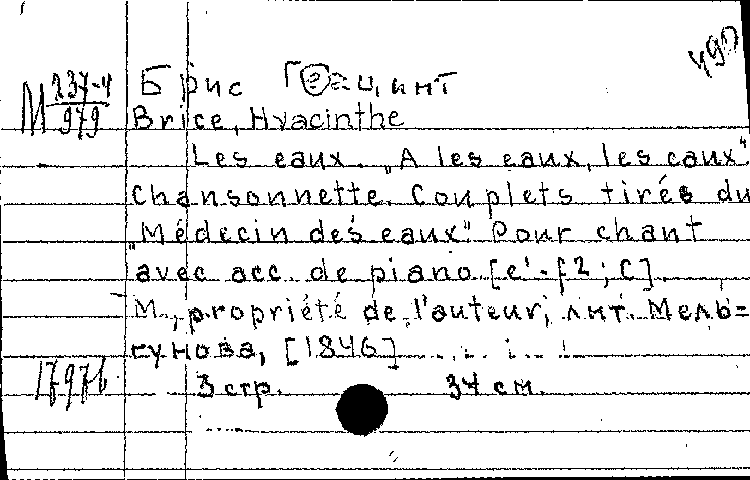 490
М 237-4/979
Брис Геацинт
Brice, Hyacinthe
Les eaux. „A les eaux, les eaux".
Chansonnette. Couplets tirés du
„Médecin des eaux". Pour chant
avec acc. de piano [e'-f2; C].
M., propriété de l'auteur, лит. Мель=
гунова, [1846]
17976
3 стр. 34 см.